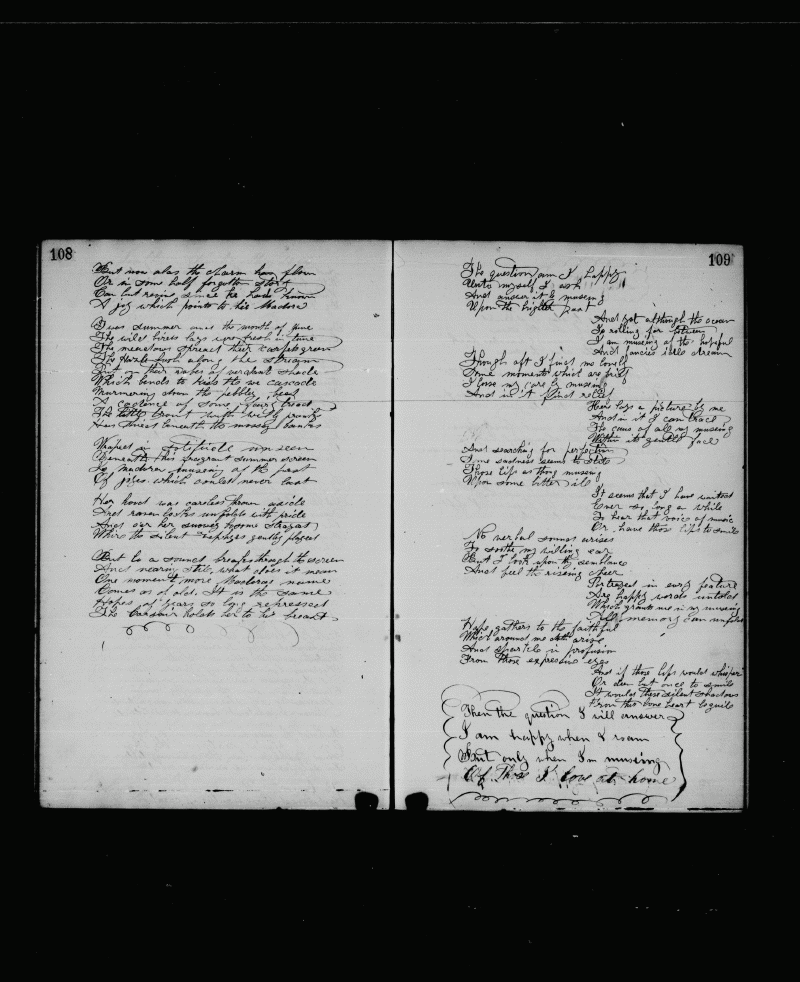 108
But now alas the charm have flown
Or in some half forgotten
Can but regain since he hath known
A joy which points to his Madora
Twas summer and the month of June
The wild birds lays were fresh in tune
The meadows spread their carpets green
The along the stream
But in their robes of verdant shade
Which bends to kiss the wee cascade
Murmering down the pebbley bed
A cadence of some fairy tread
The trout with
Has beneath the mossy banks
Wraped in solitude unseen
Beneath the fragrant summer screen
Is Madora musing of the past
Of joys which could never last
Her hood was careless thrown aside
And raven unfolds with pride
And oer her snowy bosom
Where the silent zephyes gently played
But lo a sound breaks through the screen
And nearing still, what does it mean
One moment more, Madoras name
Comes as of old. It is the same
Hopes of years so long repressed
The holds her to his breast
109
The question am I happy
Unto myself I ask
And answer it by musing
Upon the brighter past
And yet although the ocean
Is rolling far between
I am musing of the hopeful
And fancies idle dream
Though oft I find me lonely
Some moments which are brief
I lose my care by musing
And in it find relief
Here lays a picture by me
And in it I can trace
The cause of all my musing
Within its gentle face
And searching for perfection
Time sadness seems to
Those lips as thoug musing
Upon some bitter
It seems that I have waited
Ever so long a while
To hear that voice of music
Or have those lips to smile
No verbal sound arises
To soothe my willing ear
But I look upon the semblance
And feel the rising cheer
Portrayed in every feature
Are happy words untold
Which grants me in my musing
All memory can unfold
Hope gathers to the faithful
Which around me doth arise
And sparkle in profusion
From those expressive eyes
And if those lips would whisper
Or deem but once to smile
It would these silent shadows
From this lone heart beguile
Then the question I will answer
I am happy when I roam
But only when I'm musing
Of Those I love at home